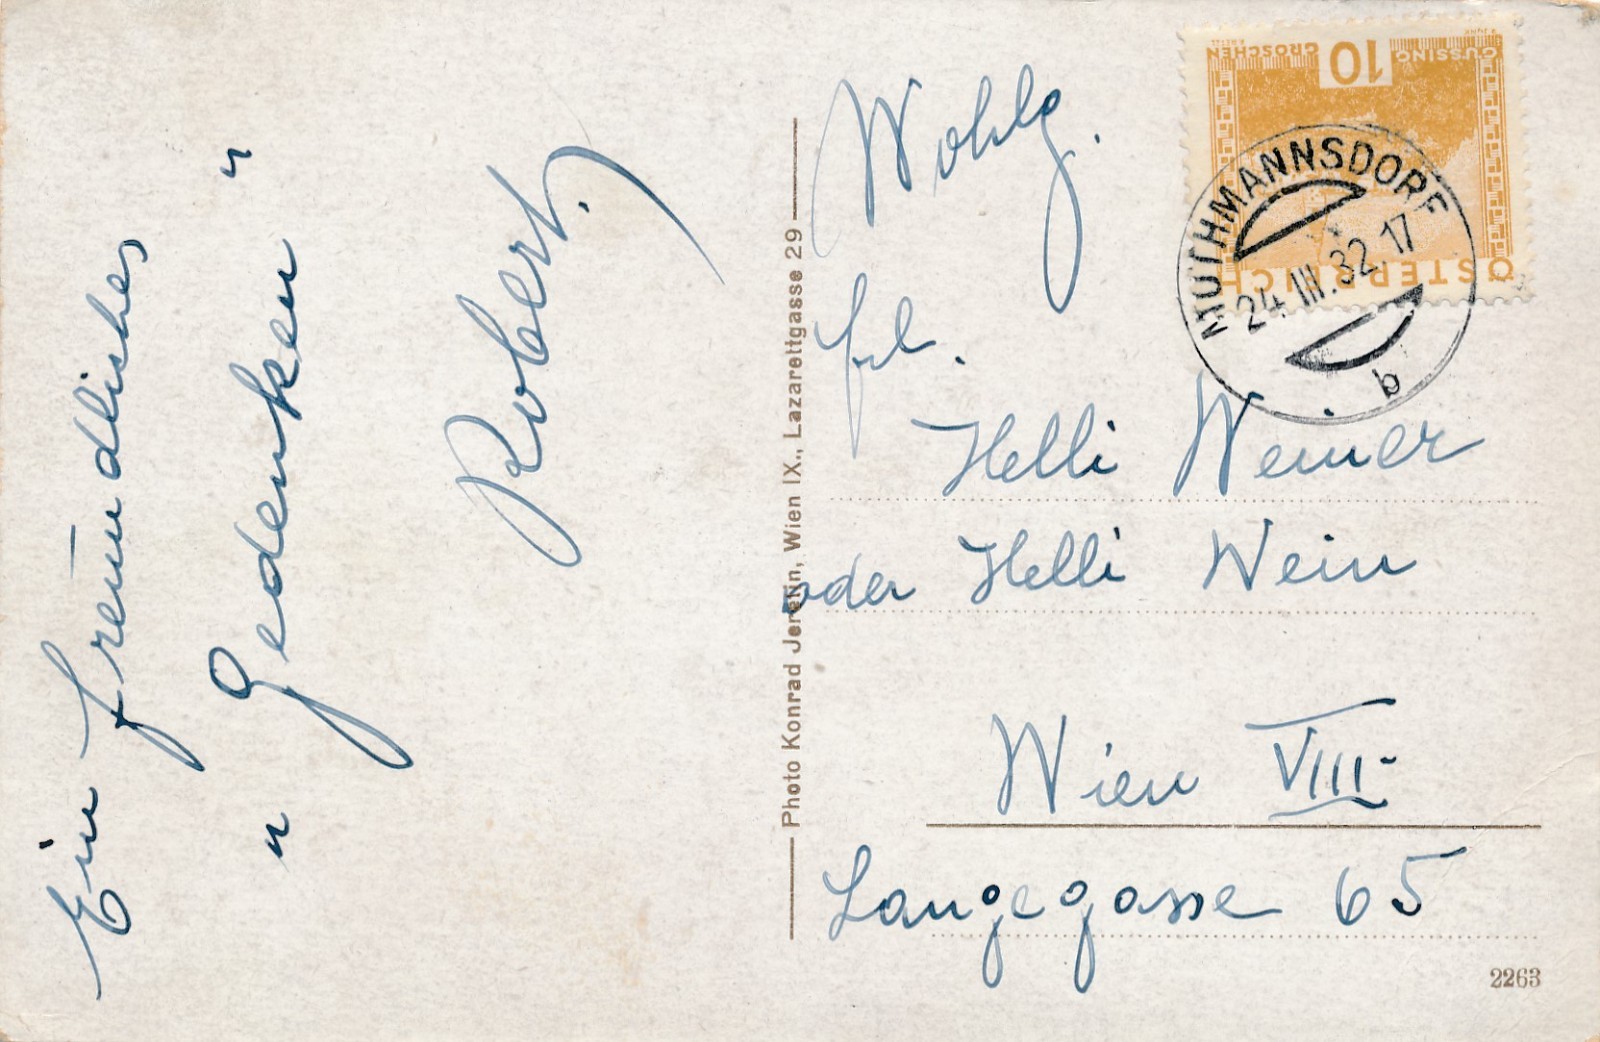 Ein freundliches
" Gedenken "
Robert.
Photo Konrad Jerelin, Wien IX., Lazarettgasse 29
GÜSSING
10
GROSCHEN
ÖSTERREICH
MUTHMANNSDORF
24.III.32.17
b
Wohlg.
Frl.
Helli Weiner
oder Helli Wein
Wien VIII.
Langegasse 65
2263